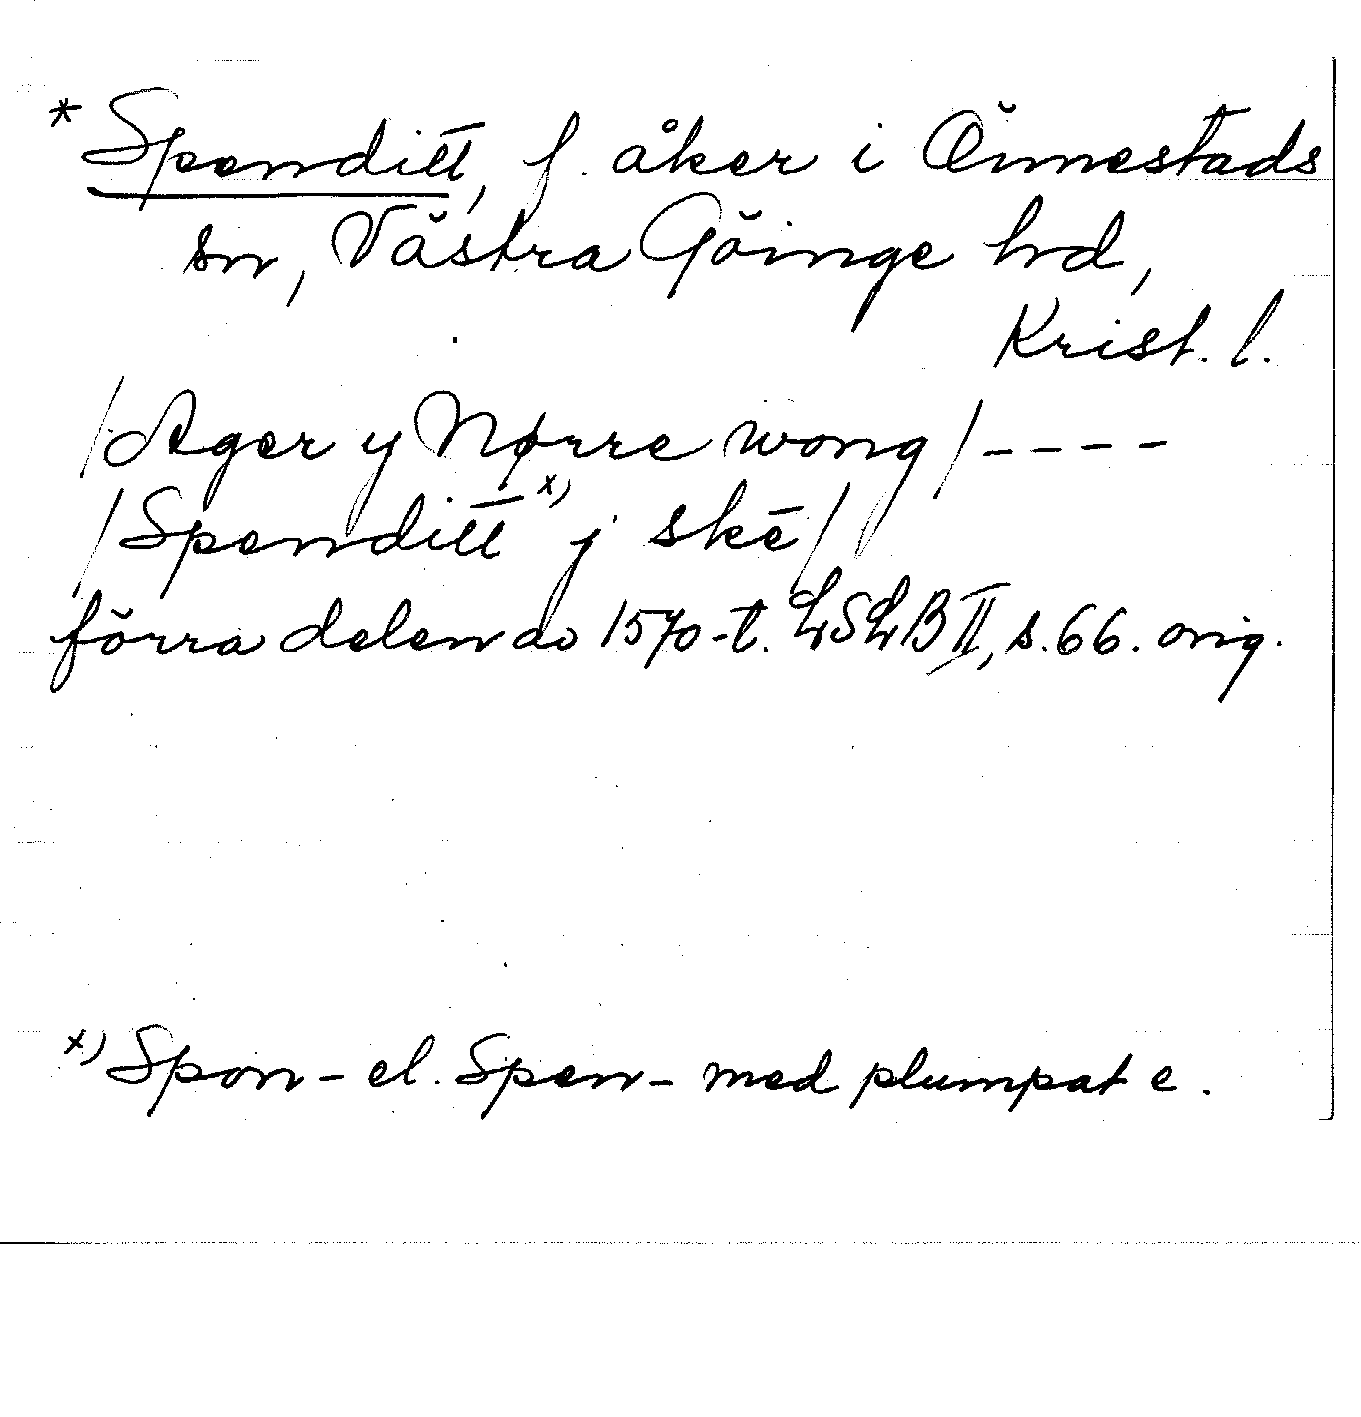 * Spenditt, f. åker i Önnestads
sn, Västra Göinge hd,
Krist. l.
/Ager y Nørre wong/----
/Spenditt x) j skē/
förra delen av 1570-t. LSLB II, s. 66. orig.
x) Spon- el. Spen- med plumpat e.